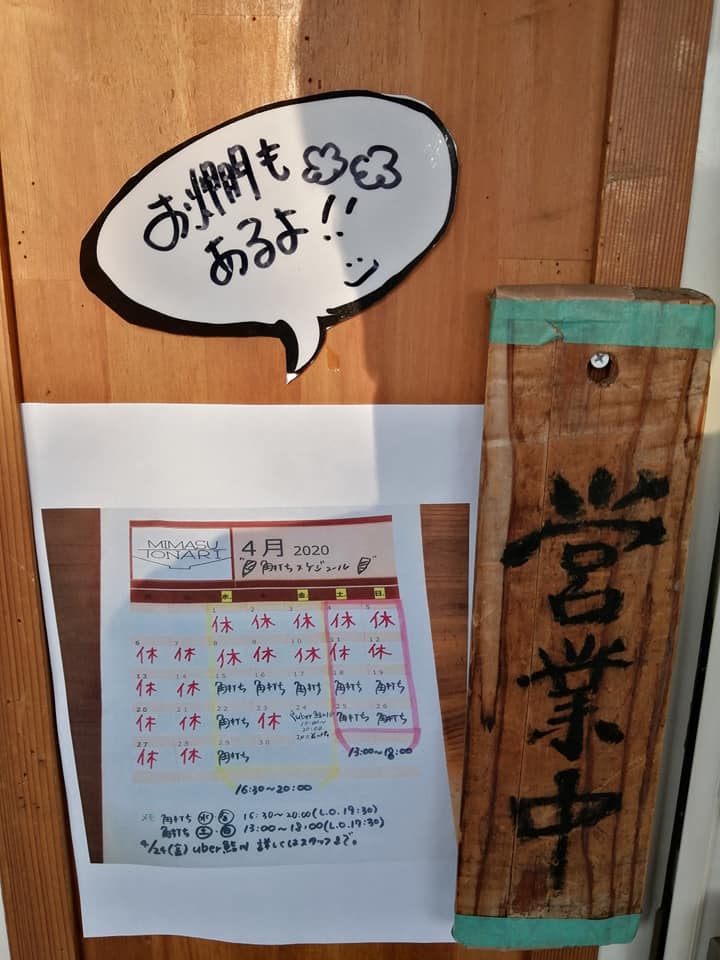 お燗も
あるよ!!
MIMASU
TONARI
4月 2020
角打ちスケジュール
水 金 土 日
1 2 3 4 5
休 休 休 休 休
6 7 8 9 10 11 12
休 休 休 休 休 休 休
13 14 15 16 17 18 19
休 休 角打ち 角打ち 角打ち 角打ち 角打ち
20 21 22 23 24 25 26
休 休 角打ち 休 角打ち 角打ち
27 28 29 30
休 休 角打ち
13:00~18:00
16:30~20:00
メモ 角打ち 水 金 16:30~20:00(L.O.19:30)
角打ち 土・日 13:00~18:00(L.O.17:30)
4/24(金) uber鮨 詳しくはスタッフまで。
営業中